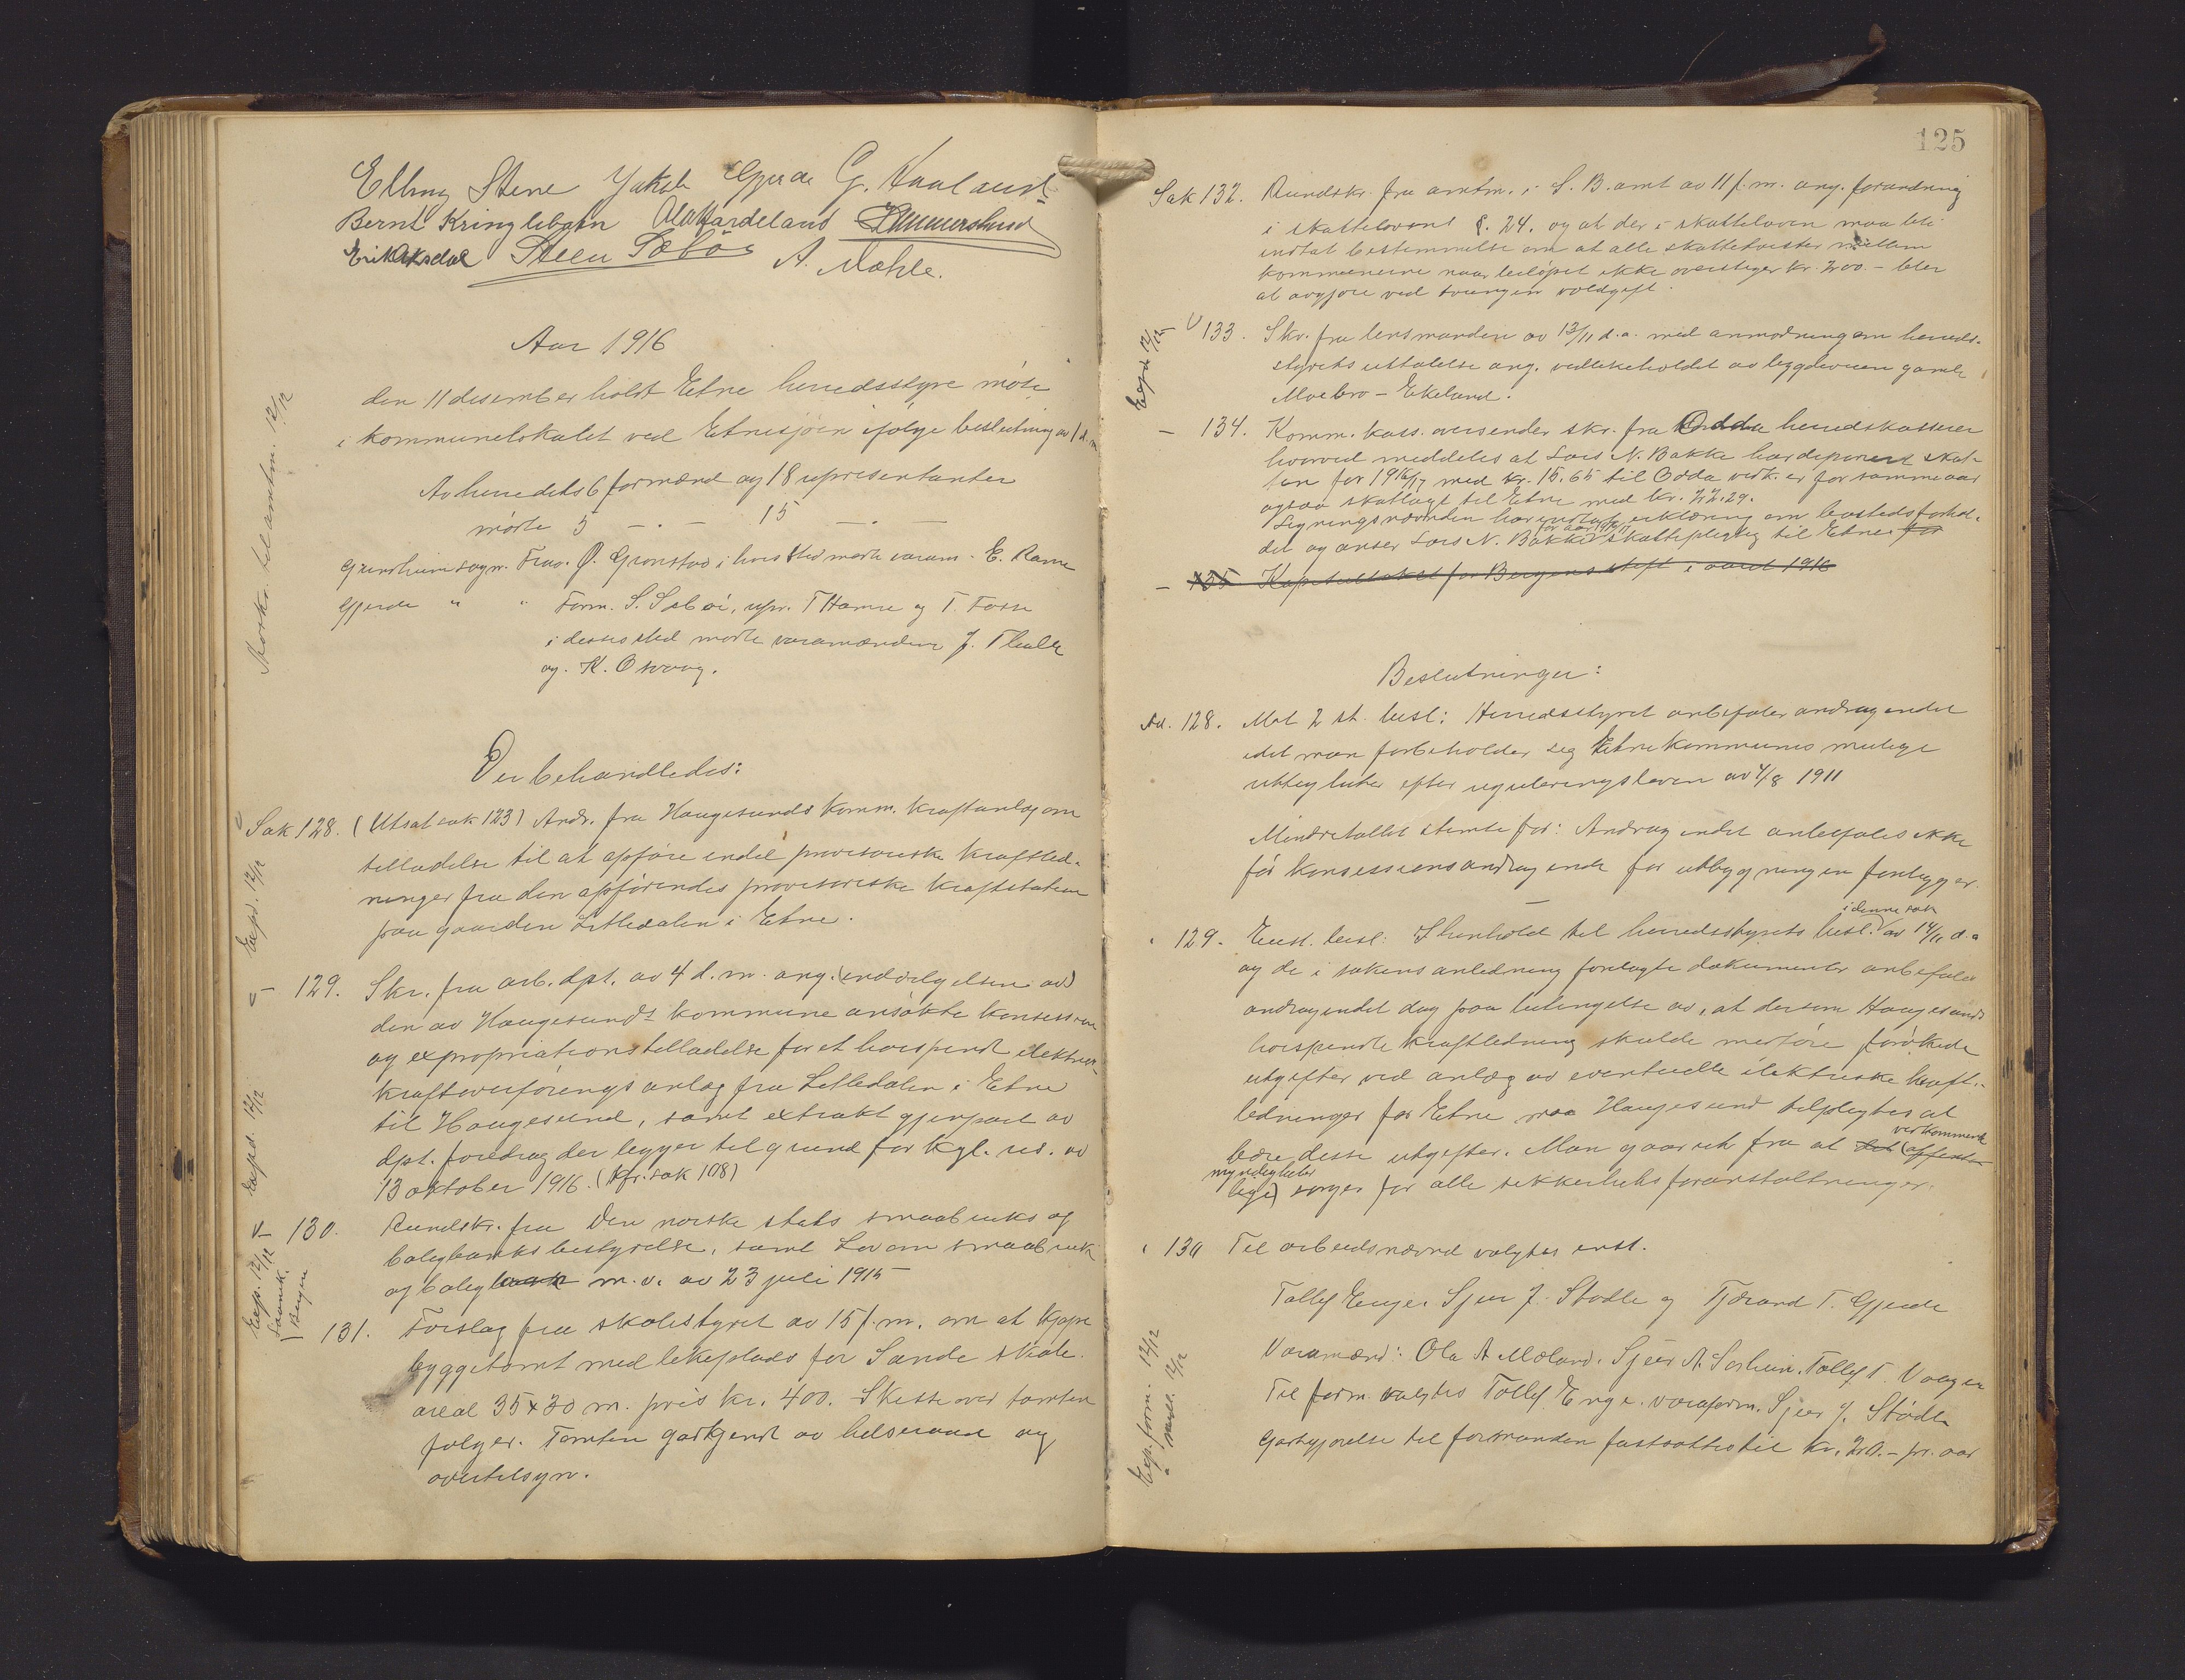 Elling Stene Jakob Gjerde G. Haaland
Bernt Kringlebotn Ola Hardeland
Erik Aksdal Steen Sæbø A. Mæhle.
Aar 1916
den 11 desember holdt Etne herredsstyre møte
i kommunelokalet ved Etnesjøen ifølge beslutning av 1 d.m.
Av herredets 6 formænd og 18 representanter
møtte 5 — " — 15 — " —
Grindheim sogn. Frav. Ø. Grønstad i hvis sted møtte varam. E. Rame
Gjerde " " Form. S. Sæbøi, repr. T Hamre og T. Fosse
i deres sted møtte varamændene J. Thule
og K. Osvaag.
Morkr. til amtm. 12/12
Der behandledes:
Sak 128. (Utsat sak 123) Andr. fra Haugesunds komm. kraftanlæg om
tilladelse til at opføre endel provisoriske kraftled-
ninger fra den opførendes provisoriske kraftstation
paa gaarden Litledalen i Etne.
Exped. 12/12
— 129. Skr. fra arb. dpt. av 4 d.m. ang. (indvilgelsen av)
den av Haugesunds kommune ansøkte konsession
og expropriationstilladelse for et høispendt elektrisk
kraftoverføringsanlæg fra Litledalen i Etne
til Haugesund, samt extrakt gjenpart av
dpt. foredrag der ligger til grund for kgl. res. av
13 oktober 1916. (Kfr. sak 108)
Exped. 12/12
— 130. Rundskr. fra Den norske stats smaabruks og
boligbanks bestyrelse, samt Lov om smaabruk
og boligbank m.v. av 23 juli 1915
Exp. 12/12
Bergen
131. Forslag fra skolestyret av 15 f.m. om at kjøpe
byggetomt med lekeplads for Sande skole.
areal 35 x 30 m. pris kr. 400. Skisse over tomten
følger. Tomten godkjendt av helseraad og
overtilsyn.
125
Sak 132. Rundskr. fra amtm. i S. B. amt av 11 f.m. ang. forandring
i skattelovens §. 24. og at der i skatteloven maa bli
indtat bestemmelse om at alle skattetvister mellem
kommunerne naar beløpet ikke overstiger kr. 200.- blir
at avgjøre ved tvungen voldgift.
Exped. 12/12
133. Skr. fra lensmanden av 13/11 d.a. med anmodning om herreds-
styrets uttalelse ang. vedlikeholdet av lægdeveien gamle
Moebro - Ekeland.
— 134. Komm. kass. oversender skr. fra Odda herredskasserer
hvorved meddeles at Lars N. Bakke har deponert skat-
ten for 1916/17 med kr. 15.65 til Odda vedk. er for samme aar
ogsaa skatlagt til Etne med kr. 22.29.
Ligningsnævnden har indhentet erklæring om bostedsforhol-
det og anser Lars N. Bakke for aar 1916/17 skattepligtig til Etne for
— 135 Kapitaltakst for Bergens stift i aaret 1916
Beslutninger:
Ad. 128. Mot 2 st. besl: Herredsstyret anbefaler andragendet
idet man forbeholder seg Etne kommunes mulige
rettigheter efter reguleringsloven av 4/8 1911
Mindretallet stemte for: Andragendet anbefales ikke
før konsessionsandragende for utbygningen foreligger.
129. Enst. besl: I henhold til herredsstyrets besl. i denne sak av 14/11 d.a
og de i sakens anledning forelagte dokumenter anbefales
andragendet dog paa betingelse av, at dersom Haugesunds
høispendte kraftledning skulde medføre forøkede
utgifter ved anlæg av eventuelle elektriske kraft-
ledninger for Etne maa Haugesund tilpligtes at
bære disse utgifter. Man gaar ut fra at det (offent- vedkommende
lige) myndigheter sørger for alle sikkerhetsforanstaltninger.
130 Til arbeidsnævnd valgtes enst.
Tollef Enge, Sjur J. Stødle og Tjerand T. Gjerde
Varamænd: Ola A Mæland, Sjur A. Sørheim, Tollef T. Vaagen
Til form. valgtes Tollef Enge. varaform. Sjur J. Stødle
Godtgjørelse til formanden fastsattes til kr. 20.- pr. aar
Exp. form. 12/12